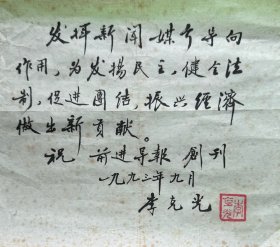 发挥新闻媒介导向
作用，为发扬民主，健全法
制，促进團结，振兴经濟
做出新贡献。
祝 前进导报 創刊
一九九三年九月
李克光